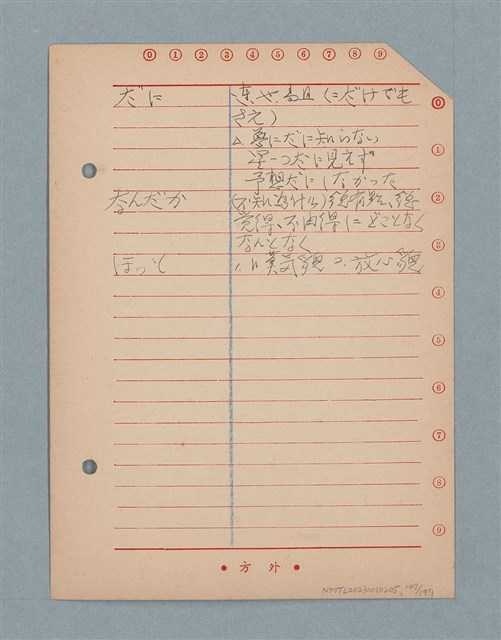 ⓪ ① ② ③ ④ ⑤ ⑥ ⑦ ⑧ ⑨
だに 連や.尚且(=だけでも
さえ)
△ 夢にだに知らない
星一つだに見えず
予想だにしなかった
なんだか (不知為什么)總有點、總
覚得、不由得=どことなく
なんとなく
ほっと 1. 嘆気貌 2. 放心貌
⓪
①
②
③
④
⑤
⑥
⑦
⑧
⑨
● 方 外 ●
NMTL20230010205, 147/197